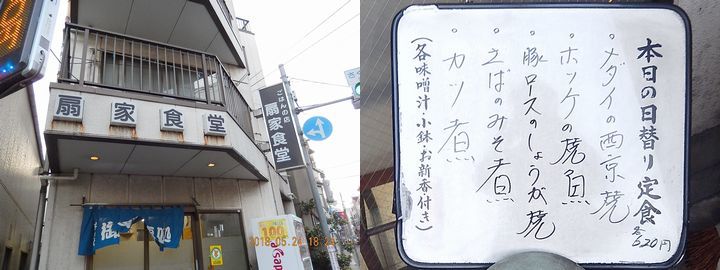 扇家食堂
ごはんの店
扇家食堂
100
2018.05.24 18:24
本日の日替り定食
各620円
・メダイの西京焼
・ホッケの塩焼
・豚ロースのしょうが焼
・さばのみそ煮
・カツ煮
（各味噌汁・小鉢お新香付き）